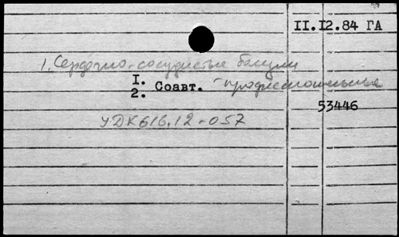 II.I2.84 ГА
1. Сердечно-сосудистые
I. - профессиональные
2. Соавт.
53446
УДК 616.12-057